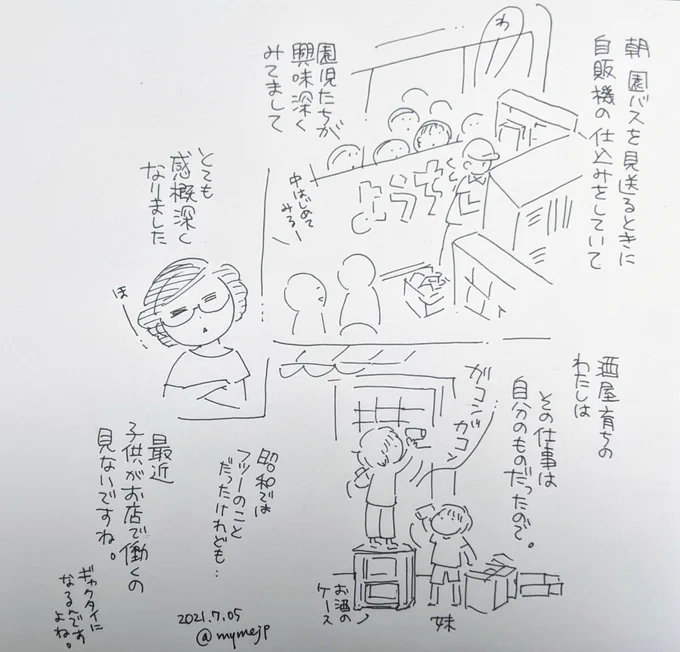 朝 園バスを見送るときに
自販機の仕込みをしていて
わ
園児たちが
興味深く
みてまして
ようちえん
中はじめて
みるー
とても
感慨深く
なりました
ほ
酒屋育ちの
わたしは
その仕事は
自分のものだったので。
ガコン
ガコン
お酒の
ケース
妹
昭和では
フツーのこと
だったけれども…
最近
子供がお店で働くの
見ないですね。
ギャクタイに
なるんです
よね。
2021.7.05
@mymejp